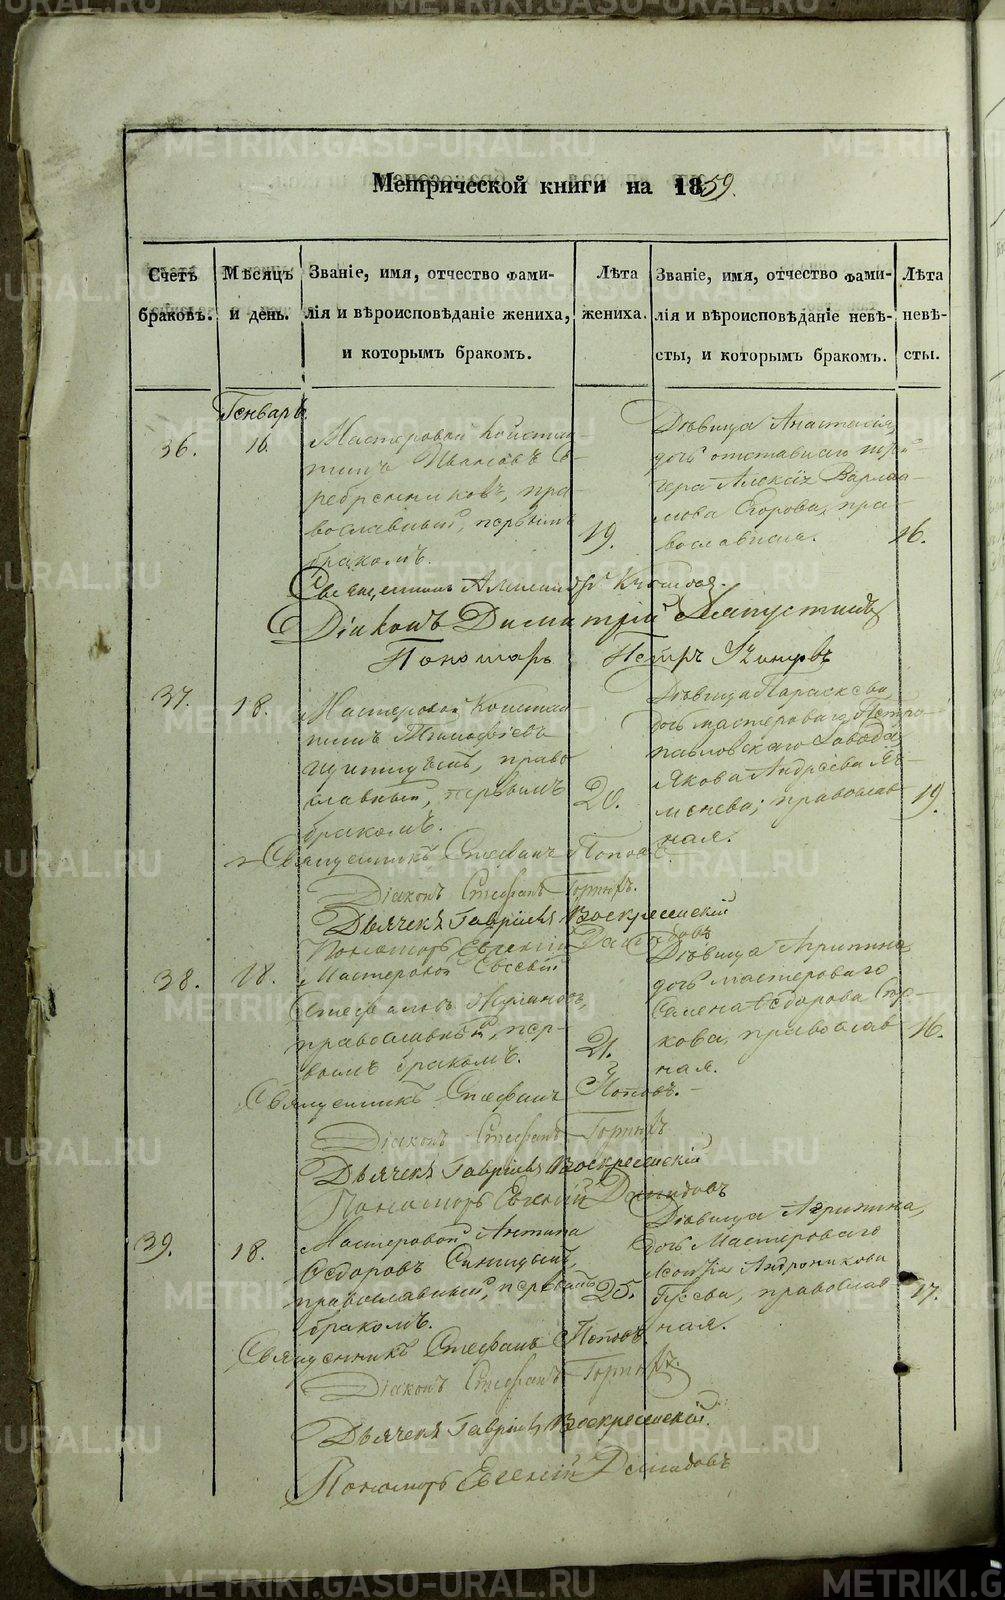 Метрической книги на 1859.
Счетъ браковъ.
Мѣсяцъ и день.
Званіе, имя, отчество фами-
лія и вѣроисповѣданіе жениха,
и которымъ бракомъ.
Лѣта жениха.
Званіе, имя, отчество фами-
лія и вѣроисповѣданіе невѣ-
сты, и которымъ бракомъ.
Лѣта невѣ-
сты.
Генварь
36.
16.
Мастеровой Констан-
тинъ Ивановъ Се-
ребрениковъ, пра-
вославный, первымъ
бракомъ.
19.
Дѣвица Анастасія,
дочь отставнаго
Алексія Варлаа-
мова Егорова, пра-
вославная.
16.
Священникъ
Діаконъ Димитрій Капустинъ
Пономарь Петръ
37.
18.
Мастеровой Констан-
тинъ Тимофѣевъ
право-
славный, первымъ
бракомъ.
20.
Дѣвица Параскева,
дочь мастероваго Петро-
павловскаго Завода
Якова Андреева
православ-
ная.
19.
Священникъ Стефанъ Поповъ.
Діаконъ Стефанъ
Дьячекъ Гавріилъ Воскресенскій
Пономарь Евгеній Демидовъ
38.
18.
Мастеровой Евсевій
Стефановъ
православный, пер-
вымъ бракомъ.
21.
Дѣвица Агрипина
дочь мастероваго
Семена Ѳедорова
кова, православ-
ная.
16.
Священникъ Стефанъ Поповъ.
Діаконъ Стефанъ
Дьячекъ Гавріилъ Воскресенскій
Пономарь Евгеній Демидовъ
39.
18.
Мастеровой Антипа
Ѳедоровъ Синицынъ,
православный, первымъ
бракомъ.
25.
Дѣвица Агрипина,
дочь Мастероваго
Андроникова
Гусева, православ-
ная.
17.
Священникъ Стефанъ Поповъ
Діаконъ Стефанъ
Дьячекъ Гавріилъ Воскресенскій.
Пономарь Евгеній Демидовъ
METRIKI.GASO-URAL.RU